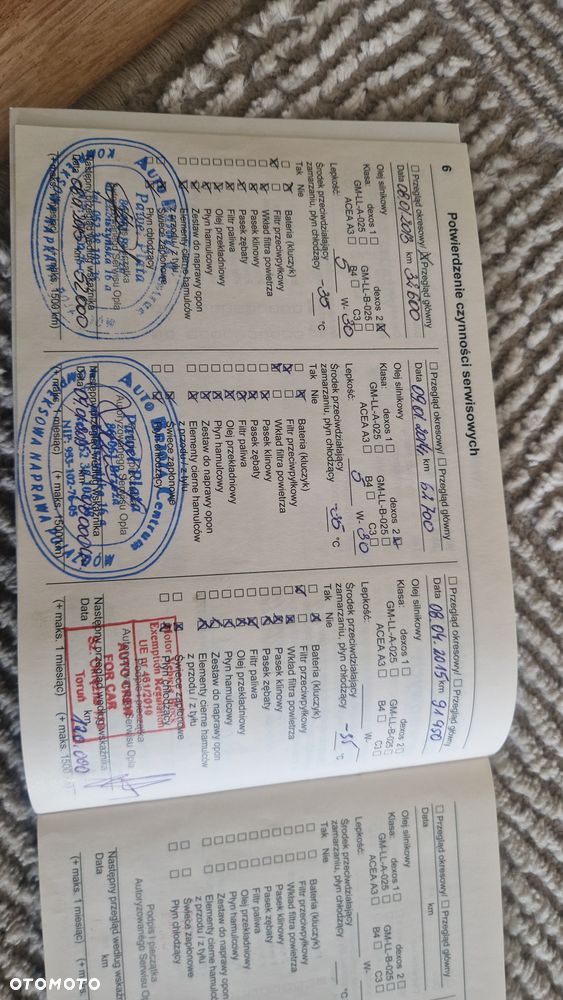 6
Potwierdzenie czynności serwisowych
Przegląd okresowy/ Przegląd główny
Data 08.01.2013 km 32600
Olej silnikowy
Klasa: dexos 1 dexos 2
GM-LL-A-025 GM-LL-B-025
ACEA A3 B4 C3
Lepkość: 5 W- 30
Środek przeciwdziałający
zamarzaniu, płyn chłodzący -35 °C
Tak Nie
Bateria (kluczyk)
Filtr przeciwpyłkowy
Wkład filtra powietrza
Pasek klinowy
Pasek zębaty
Filtr paliwa
Olej przekładniowy
Płyn hamulcowy
Zestaw do naprawy opon
Elementy cierne hamulców
z przodu / z tyłu
Świece zapłonowe
Płyn chłodzący
Przegląd okresowy/ Przegląd główny
Data 09.01.2014 km 62700
Olej silnikowy
Klasa: dexos 1 dexos 2
GM-LL-A-025 GM-LL-B-025
ACEA A3 B4 C3
Lepkość: 5 W- 30
Środek przeciwdziałający
zamarzaniu, płyn chłodzący -35 °C
Tak Nie
Bateria (kluczyk)
Filtr przeciwpyłkowy
Wkład filtra powietrza
Pasek klinowy
Pasek zębaty
Filtr paliwa
Olej przekładniowy
Płyn hamulcowy
Zestaw do naprawy opon
Elementy cierne hamulców
z przodu / z tyłu
Świece zapłonowe
Autoryzowanego Serwisu Opla
(+ maks. 1 miesiąc) (+ maks. 1500 km)
Przegląd okresowy/ Przegląd główny
Data 08.04.2015 km 91950
Olej silnikowy
Klasa: dexos 1 dexos 2
GM-LL-A-025 GM-LL-B-025
ACEA A3 B4
Lepkość: W-
Środek przeciwdziałający
zamarzaniu, płyn chłodzący -35 °C
Tak Nie
Bateria (kluczyk)
Filtr przeciwpyłkowy
Wkład filtra powietrza
Pasek klinowy
Pasek zębaty
Filtr paliwa
Olej przekładniowy
Płyn hamulcowy
Zestaw do naprawy opon
Elementy cierne hamulców
z przodu / z tyłu
Świece zapłonowe
Płyn chłodzący
Motor Vehicle
UE Nr 461/2010
FOR CAR
Toruń
Następny przegląd według wskaźnika
Data km 120.000
(+ maks. 1 miesiąc) (+ maks. 1500
Przegląd okresowy/ Przegląd główny
Data km
Olej silnikowy
Klasa: dexos 1 dexos 2
GM-LL-A-025 GM-LL-B-025
ACEA A3 B4 C3
Lepkość: W-
Środek przeciwdziałający
zamarzaniu, płyn chłodzący °C
Tak Nie
Bateria (kluczyk)
Filtr przeciwpyłkowy
Wkład filtra powietrza
Pasek klinowy
Pasek zębaty
Filtr paliwa
Olej przekładniowy
Płyn hamulcowy
Zestaw do naprawy opon
Elementy cierne hamulców
z przodu / z tyłu
Świece zapłonowe
Płyn chłodzący
Podpis i pieczątka
Autoryzowanego Serwisu
Następny przegląd według
Data km
(+ maks. 1 miesiąc) (+ maks.
OTOMOTO